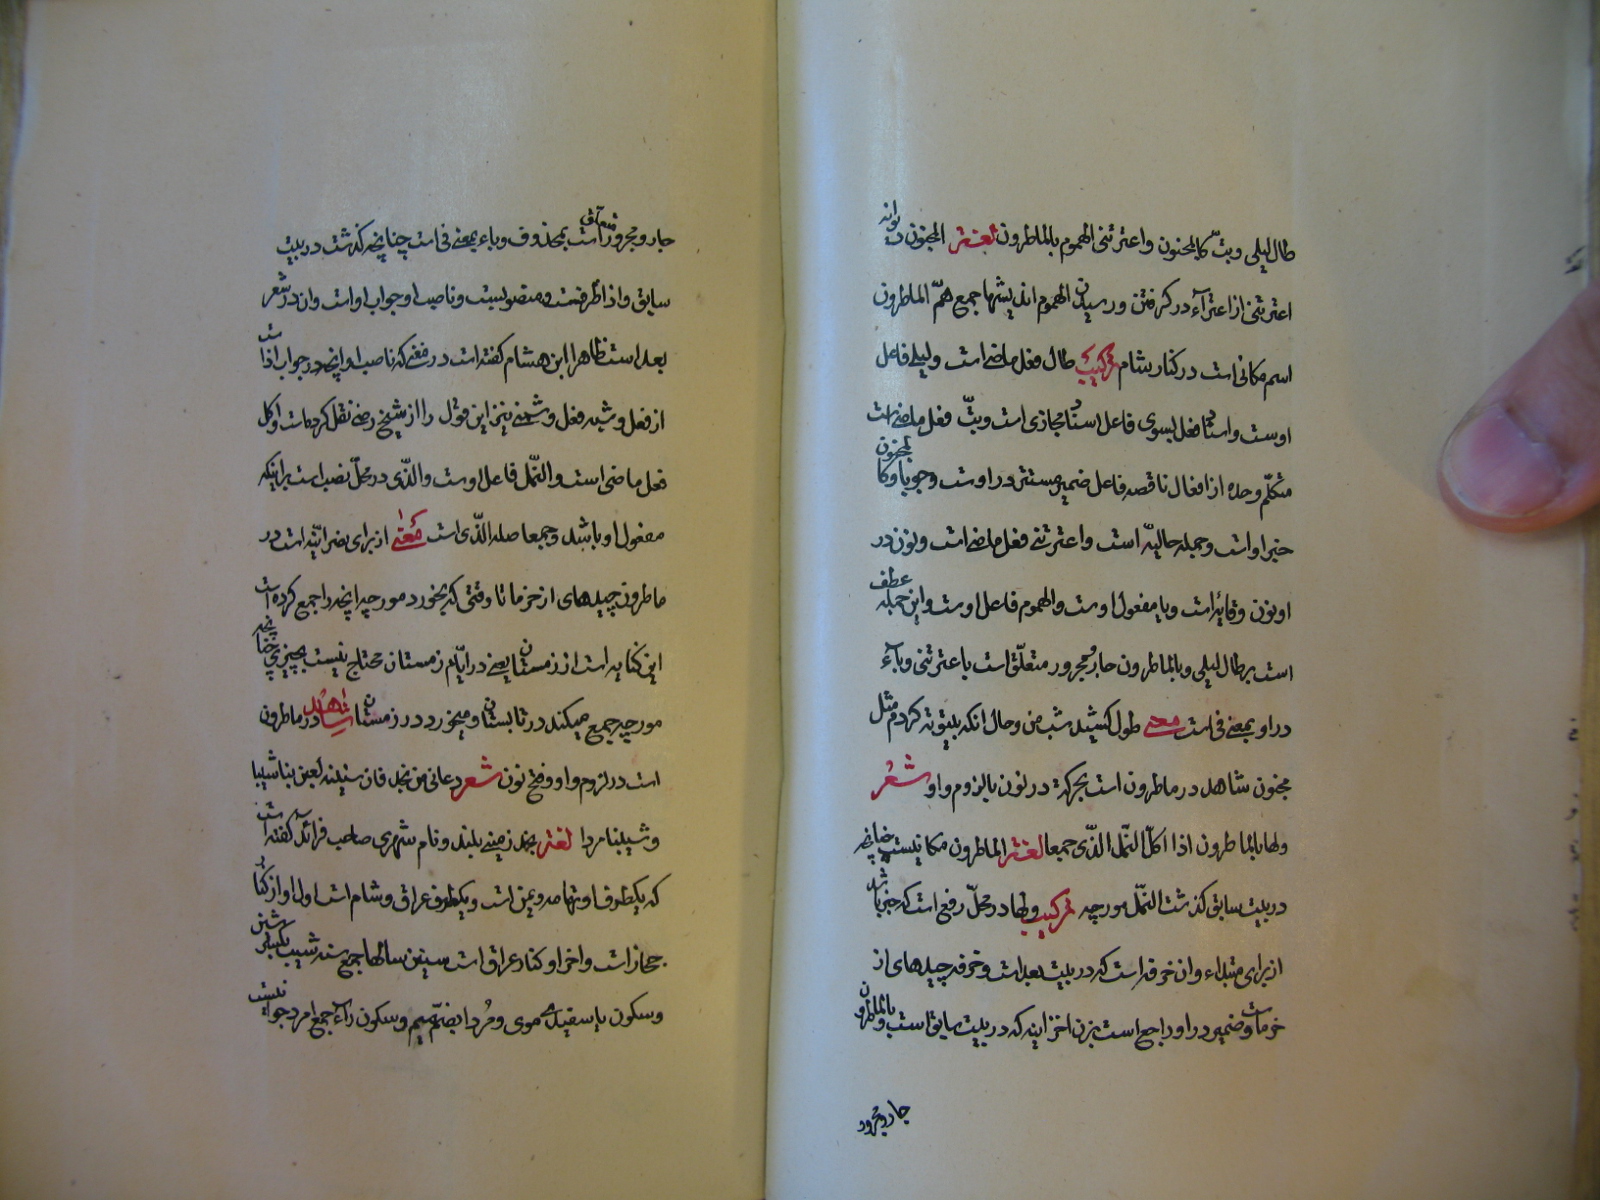 طال لیلی وبتّ کالمجنون واعترتنی الهموم بالماطرون لغتر المجنون دیوانه
اعترتنی از اعترآء در گرفتن ورسیدن الهموم اندیشها جمع همّ الماطرون
اسم مکانی است در کنار بشام ترکیب طال فعل ماضی است ولیلی فاعل
اوست واسناد فعل بسوی فاعل اسناد مجازی است وبتّ فعل ماضی است
متکلّم وحده از افعال ناقصه فاعل ضمیر مستتر در اوست وجوبا وکالمجنون
خبر اوات وجمله حالیّه است واعترتنی فعل ماضی است ونون در
اونون وقایه است ویا مفعول اوست والهموم فاعل اوست واین جمله عطف
است بر طال لیلی وبالماطرون جار ومجرور متعلّق است باعترتنی وبآء
در او بمعنی فی است معنی طول کشید شب من وحال انکه بیتوته کردم مثل
مجنون شاهد در ماطرون است بحرکة در نون بالزوم واو شعر
ولها بالماطرون اذا اکل النّمل الذّی جمعا لغتر الماطرون مکانیست چنانچه
در بیت سابق کذشت النّمل مورچه ترکیب ولها در محلّ رفع است که خبر باشد
از برای مبتداء وان خرفه است که در بیت بعد است وخرفه چیدهای از
خرمات وضمیر در او راجع است بزن اخزاینه که در بیت سابق است وبالماطرون
جار ومجرور
جار ومجرور متعلق است بمحذوف وباء بمعنی فی است چنانچه کذشت در بیت
سابق واذا ظرفست ومنصوبست وناصب او جواب اوات وان در شعر
بعد است ظاهرا ابن هشام کفته است در مغنی که ناصب اوانچه در جواب اذا ست
از فعل وشبه فعل و نیز این قول را از شیخ رضی نقل کرده است واکل
فعل ماضی است والنّمل فاعل اوست والذّی در محلّ نصب است براینکه
مفعول او باشد وجمعا صله الذّی است معنی از برای نصرانیّه است در
ماطرون چیدهای از خرما تا وقتی که بخورد مورچه انچه را جمع کرده است
این کنایه است از زمستان یعنی در ایّام زمستان محتاج نیست بچیزی چنانچه
مورچه جمع میکند در تابستان ومیخورد در زمستان شاهد در ماطرون
است در لزوم واو وفتح نون شعر دعانی من نجد فان سنینه لعبن بنا شیبا
وشیبننا مردا لغتر نجد زمینی بلند ونام شهری صاحب فرائد کفته است
که یکطرف او تهامه ویمن است ویکطرف عراق وشام است اول او از کنار
حجاز است واخر او کنار عراق است سنین سالها جمع سنه شیب بکسر شین
وسکون یا سفیدی موی ومرد ا بضمّ میم وسکون رآء جمع امرد جوانیست